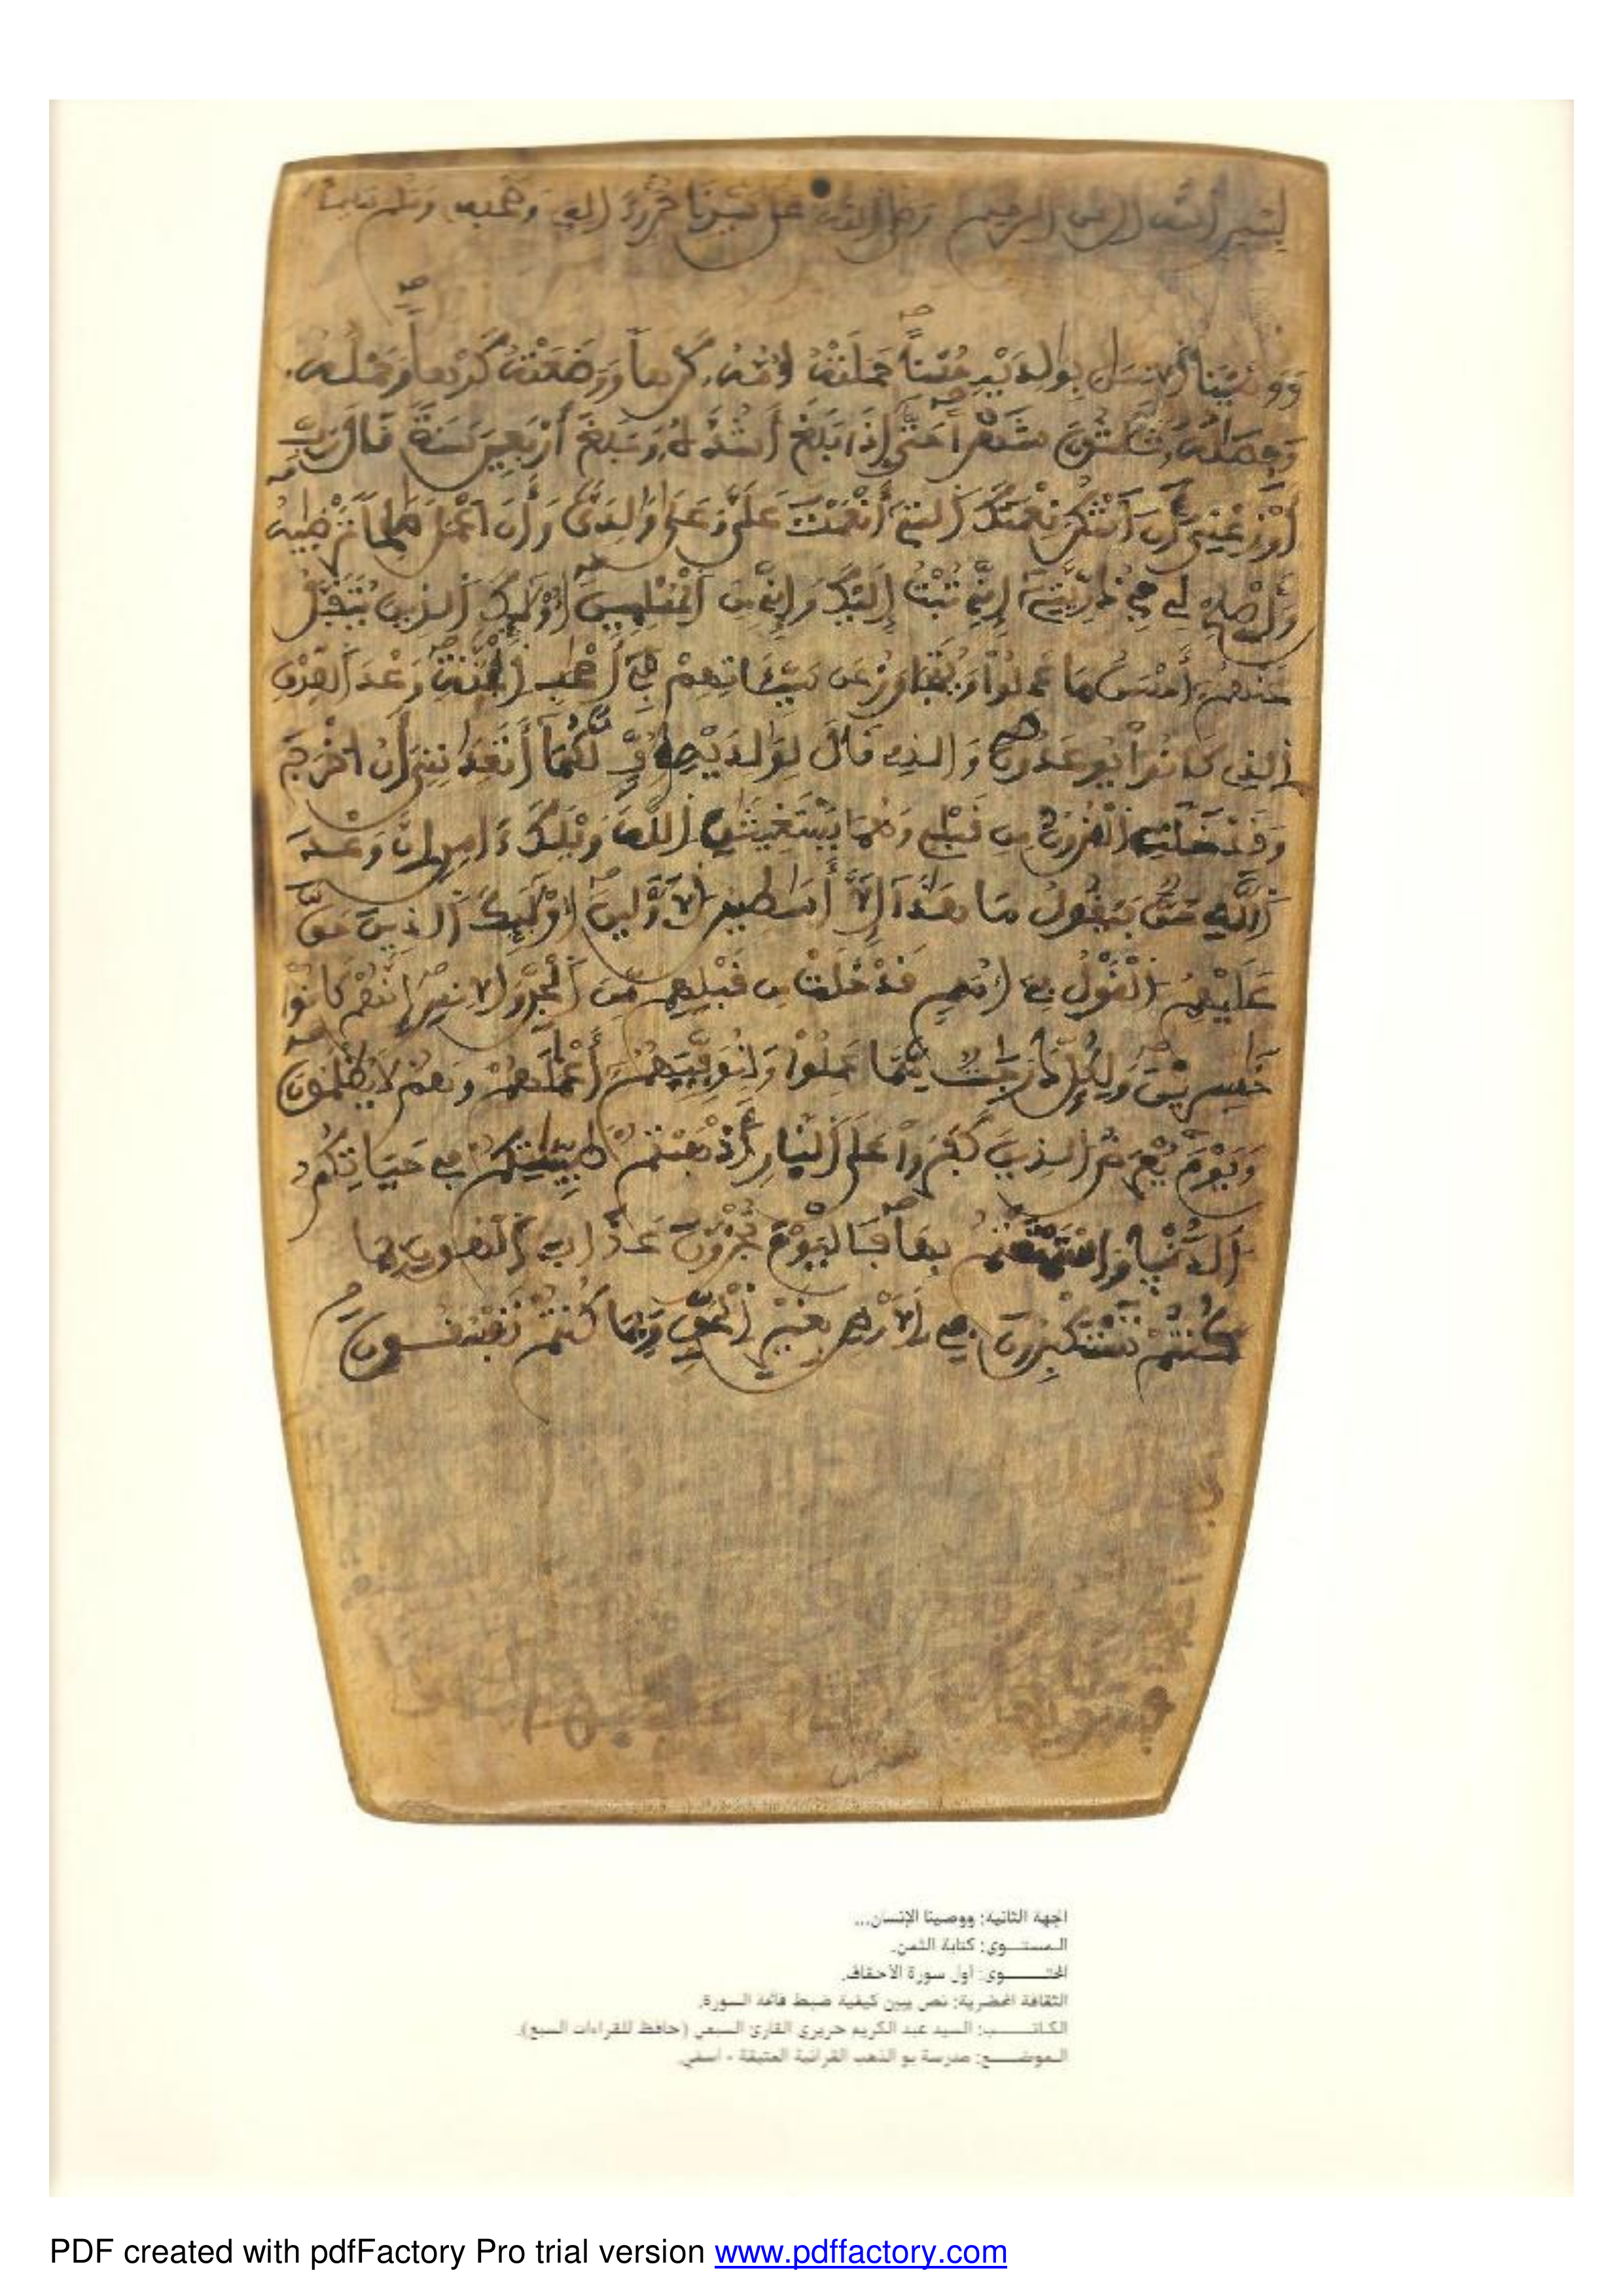 بسم الله الرحمن الرحيم وصلى الله على سيدنا محمد وءاله وصحبه وسلم تسليما
وَوَصَّيْنَا اَلِانسَٰنَ بِوَٰلِدَيْهِ حُسْناً حَمَلَتْهُ أُمُّهُۥ كَرْهاً وَوَضَعَتْهُ كَرْهاً وَحَمْلُهُۥ
وَفِصَٰلُهُۥ ثَلَٰثُونَ شَهْراً حَتَّىٰ إِذَا بَلَغَ أَشُدَّهُۥ وَبَلَغَ أَرْبَعِينَ سَنَةً قَالَ رَبِّ
أَوْزِعْنِي أَنَ اَشْكُرَ نِعْمَتَكَ اَلتِي أَنْعَمْتَ عَلَيَّ وَعَلَىٰ وَٰلِدَيَّ وَأَنَ اَعْمَلَ صَٰلِحاً تَرْضَيٰهُ
وَأَصْلِحْ لِي فِي ذُرِّيَّتِي إِنِّي تُبْتُ إِلَيْكَ وَإِنِّي مِنَ اَلْمُسْلِمِينَ أُوْلَٰئِكَ اَلذِينَ يُتَقَبَّلُ
عَنْهُمُ أَحْسَنُ مَا عَمِلُواْ وَيُتَجَاوَزُ عَن سَيِّـَٔاتِهِمْ فِي أَصْحَٰبِ اِلْجَنَّةِ وَعْدَ اَلصِّدْقِ
اِلذِي كَانُواْ يُوعَدُونَ وَالذِي قَالَ لِوَٰلِدَيْهِ أُفٍّ لَّكُمَا أَتَعِدَٰنِنِي أَنُ اخْرَجَ
وَقَدْ خَلَتِ اِلْقُرُونُ مِن قَبْلِي وَهُمَا يَسْتَغِيثَٰنِ اِللَّهَ وَيْلَكَ ءَامِنِ اِنَّ وَعْدَ
اَللَّهِ حَقٌّ فَيَقُولُ مَا هَٰذَا إِلَّا أَسَٰطِيرُ اُلَاوَّلِينَ أُوْلَٰئِكَ اَلذِينَ حَقَّ
عَلَيْهِمُ اُلْقَوْلُ فِي أُمَمٍ قَدْ خَلَتْ مِن قَبْلِهِم مِّنَ اَلْجِنِّ وَالِانسِ إِنَّهُمْ كَانُواْ
خَٰسِرِينَ وَلِكُلٍّ دَرَجَٰتٌ مِّمَّا عَمِلُواْ وَلِنُوَفِّيَهُمُ أَعْمَٰلَهُمْ وَهُمْ لَا يُظْلَمُونَ
وَيَوْمَ يُعْرَضُ اُلذِينَ كَفَرُواْ عَلَى اَلنَّارِ أَذْهَبْتُمْ طَيِّبَٰتِكُمْ فِي حَيَاتِكُمُ
اُلدُّنْيَا وَاسْتَمْتَعْتُم بِهَا فَالْيَوْمَ تُجْزَوْنَ عَذَابَ اَلْهُونِ بِمَا
كُنتُمْ تَسْتَكْبِرُونَ فِي اِلَارْضِ بِغَيْرِ اِلْحَقِّ وَبِمَا كُنتُمْ تَفْسُقُونَ
الجهة الثانية: ووصينا الإنسان...
المستــوى: كتابة الثمن.
المحتــــوى: أول سورة الأحقاف.
الثقافة المحضرية: نص يبين كيفية ضبط فاتحة السورة.
الكاتــــب: السيد عبد الكريم حريري القارئ السبعي (حافظ للقراءات السبع).
الموضــع: مدرسة بو الذهب القرآنية العتيقة - آسفي.
PDF created with pdfFactory Pro trial version www.pdffactory.com